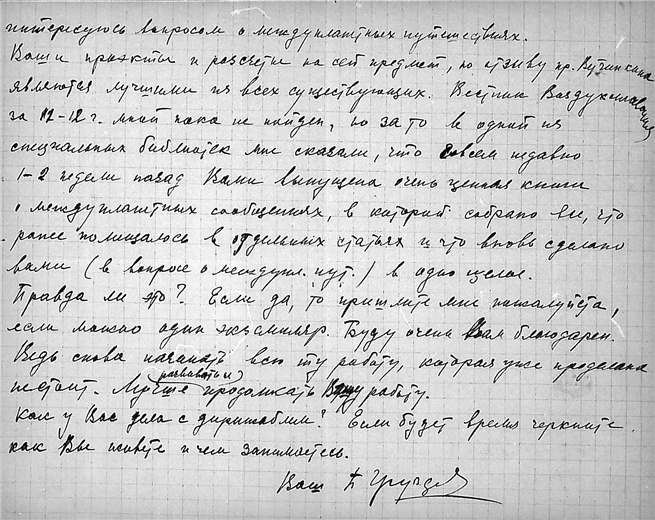 интересуюсь вопросом о междупланетных путешествиях.
Ваши проэкты и рассчеты на сей предмет, по отзыву пр. Ветчинкина
являются лучшими из всех существующих. Вестник Воздухоплавания
за 11-12 г. мной пока не найден, но за то в одной из
специальных библиотек мне сказали, что совсем недавно
1-2 недели назад Вами выпущена очень ценная книга
о междупланетных сообщениях, в которой собрано все, что
ранее помещалось в отдельных статьях и что вновь сделано
вами (в вопросе о междупл. пут.) в одно целое.
Правда ли это? Если да, то пришлите мне пожалуйста,
если можно один экземпляр. Буду очень Вам благодарен.
Ведь снова начинать всю ту работу, которая уже проделана
не стоит. Лучше развивать и продолжать Вашу работу.
Как у Вас дела с дирижаблем? Если будет время черкните
как Вы живете и чем занимаетесь.
Ваш